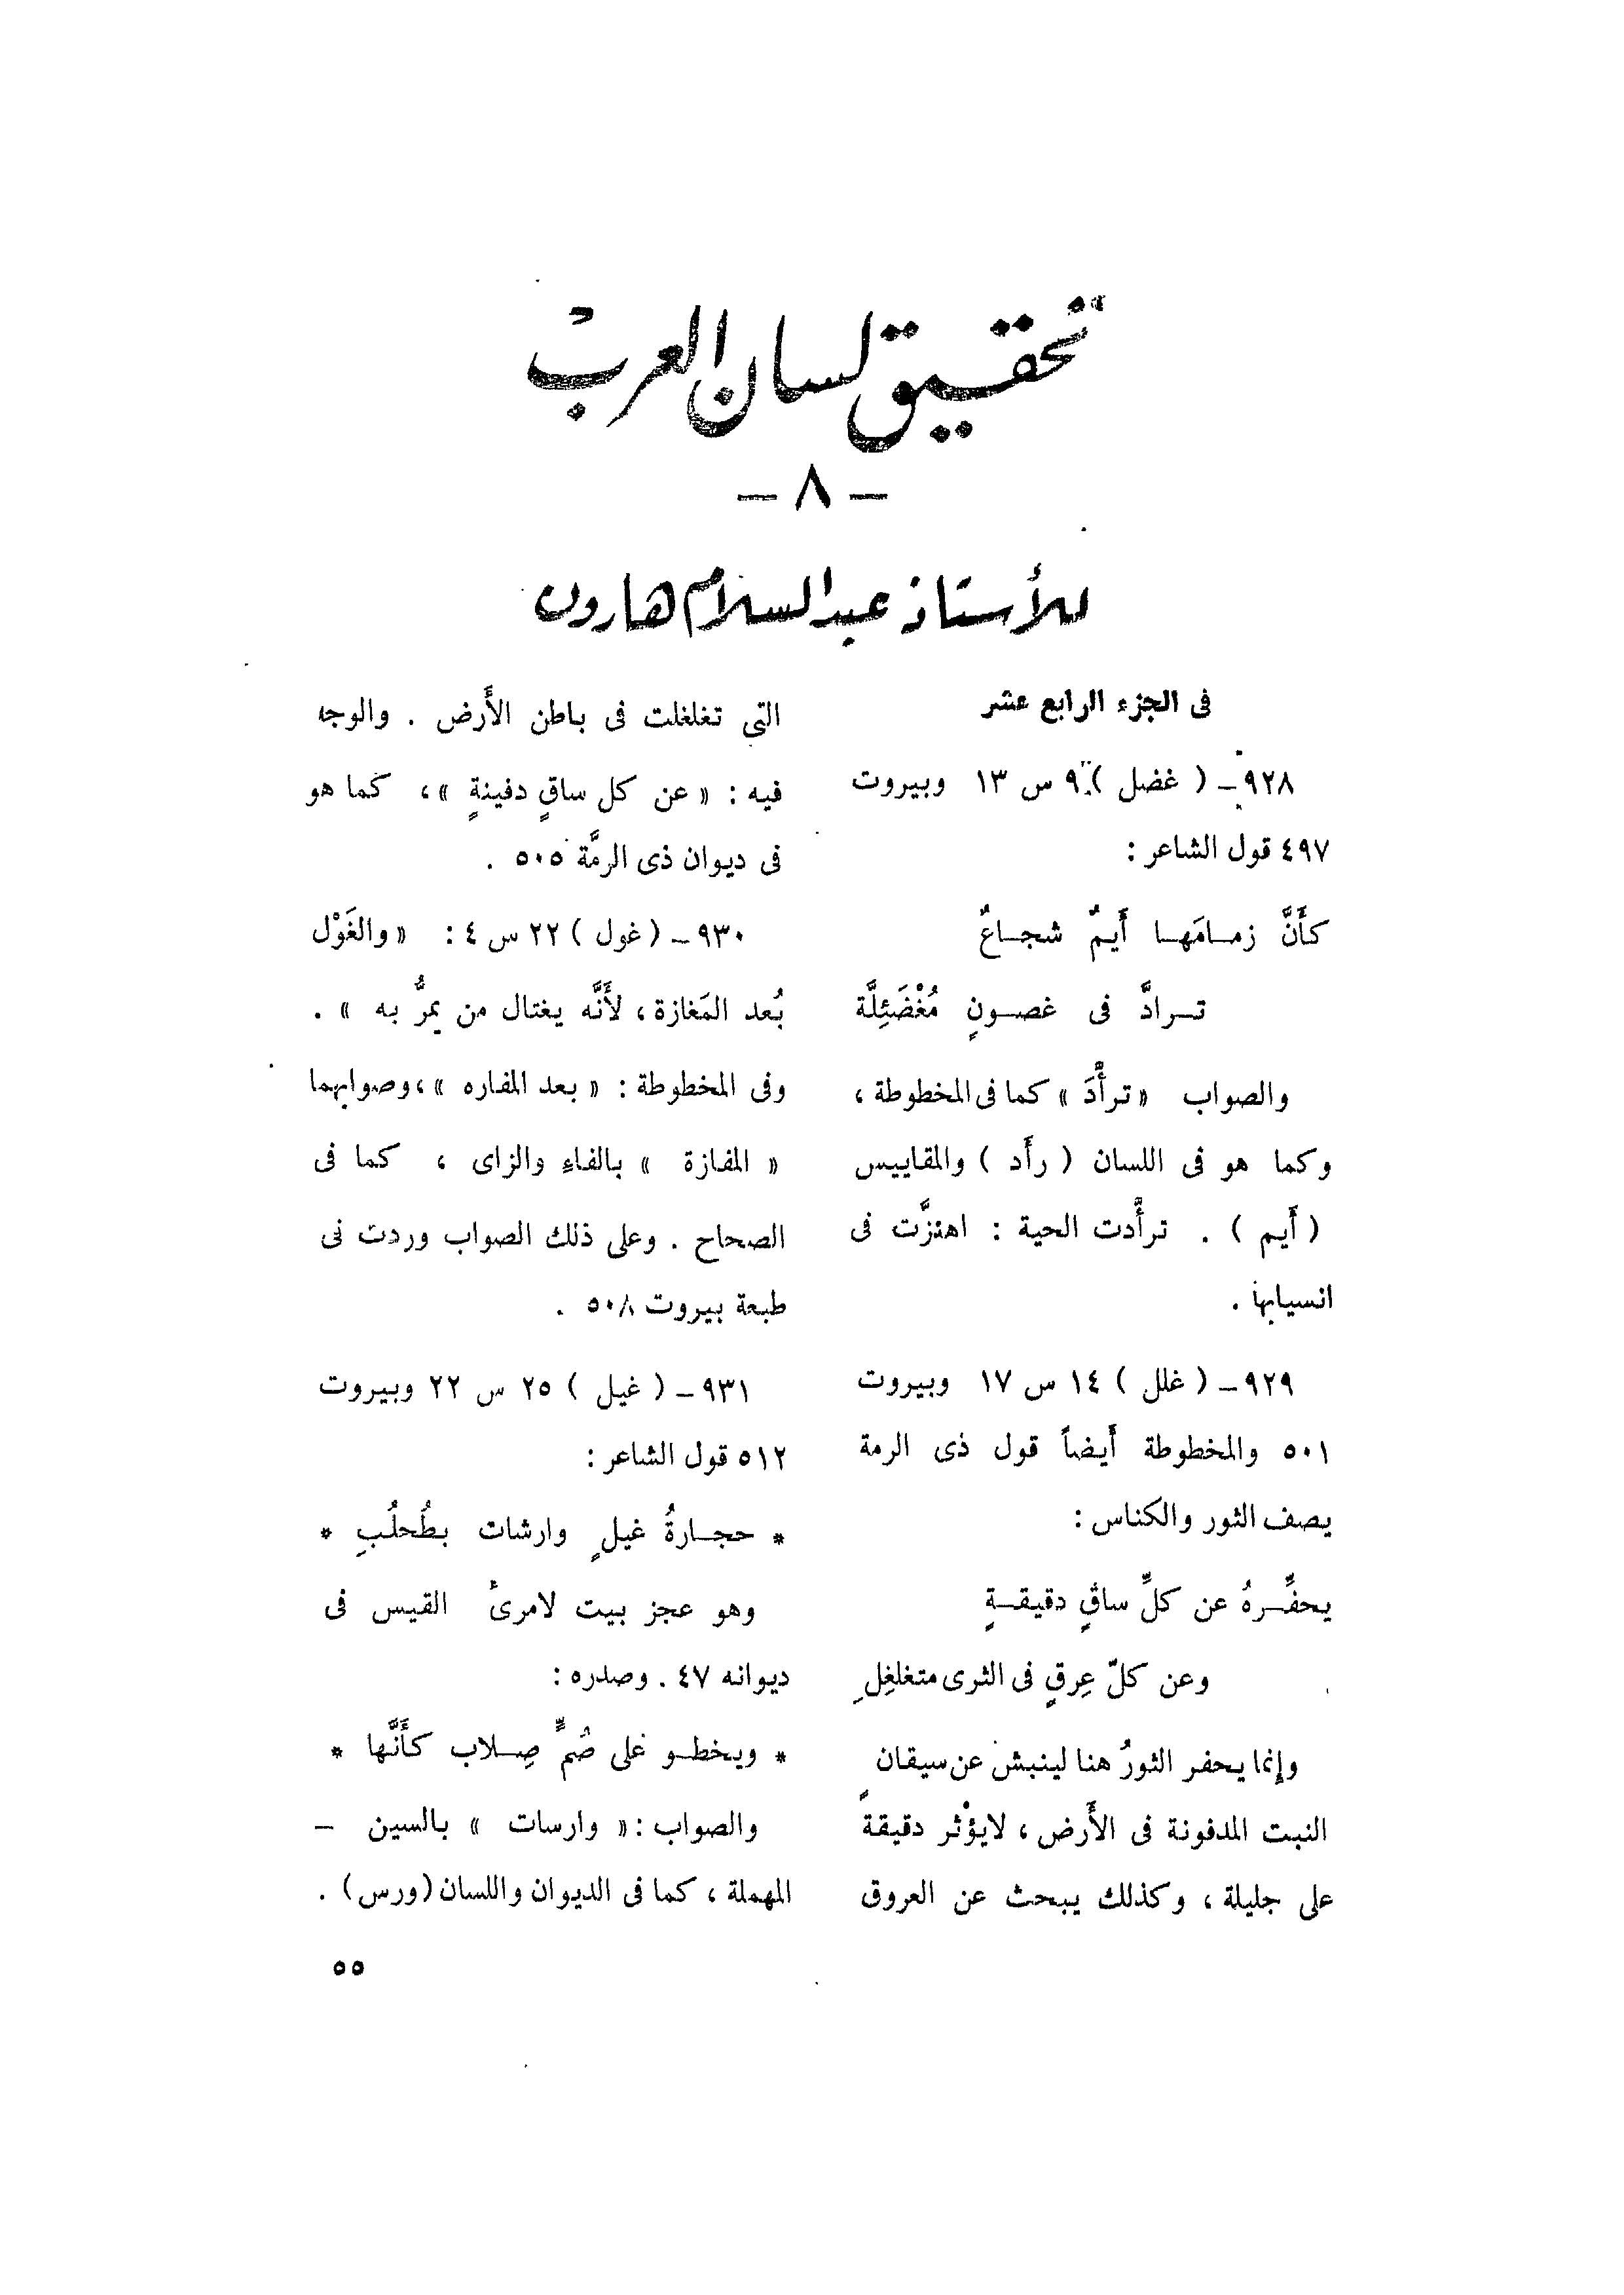 تحقيق لسان العرب
– ٨ –
للأستاذ عبد السلام هارون
فى الجزء الرابع عشر
٩٢٨ – ( غضل ) ٩ س ١٣ وبيروت
٤٩٧ قول الشاعر :
كأَنَّ زمـامَهـا أَيمٌ شجـاعٌ
تـرادَّ فى غصـونٍ مُغْضَئِلَّة
والصواب « ترأَّدَ » كما فى المخطوطة ،
وكما هو فى اللسان ( رأَد ) والمقاييس
( أَيم ) . ترأَّدت الحية : اهتزَّت فى
انسيابها .
٩٢٩ – ( غلل ) ١٤ س ١٧ وبيروت
٥٠١ والمخطوطة أَيضاً قول ذى الرمة
يصف الثور والكناس :
يحفِّـرهُ عن كلِّ ساقٍ دقيقـةٍ
وعن كلّ عِرقٍ فى الثرى متغلغِلِ
وإنما يحفر الثورُ هنا لينبش عن سيقان
النبت المدفونة فى الأَرض ، لايؤْثر دقيقةً
على جليلة ، وكذلك يبحث عن العروق
التى تغلغلت فى باطن الأَرض . والوجه
فيه : « عن كل ساقٍ دفينةٍ » ، كما هو
فى ديوان ذى الرمَّة ٥٠٥ .
٩٣٠ – ( غول ) ٢٢ س ٤ : « والغَوْل
بُعد المَغازة ، لأَنَّه يغتال من يمرُّ به » .
وفى المخطوطة : « بعد المفاره » ، وصوابهما
« المفازة » بالفاءِ والزاى ، كما فى
الصحاح . وعلى ذلك الصواب وردت فى
طبعة بيروت ٥٠٨ .
٩٣١ – ( غيل ) ٢٥ س ٢٢ وبيروت
٥١٢ قول الشاعر :
* حجـارةُ غيلٍ وارشات بطُحلُبِ *
وهو عجز بيت لامرئ القيس فى
ديوانه ٤٧ . وصدره :
* ويخطـو على صُمٍّ صِـلاب كأَنَّها *
والصواب : « وارسات » بالسين –
المهملة ، كما فى الديوان واللسان (ورس) .
٥٥